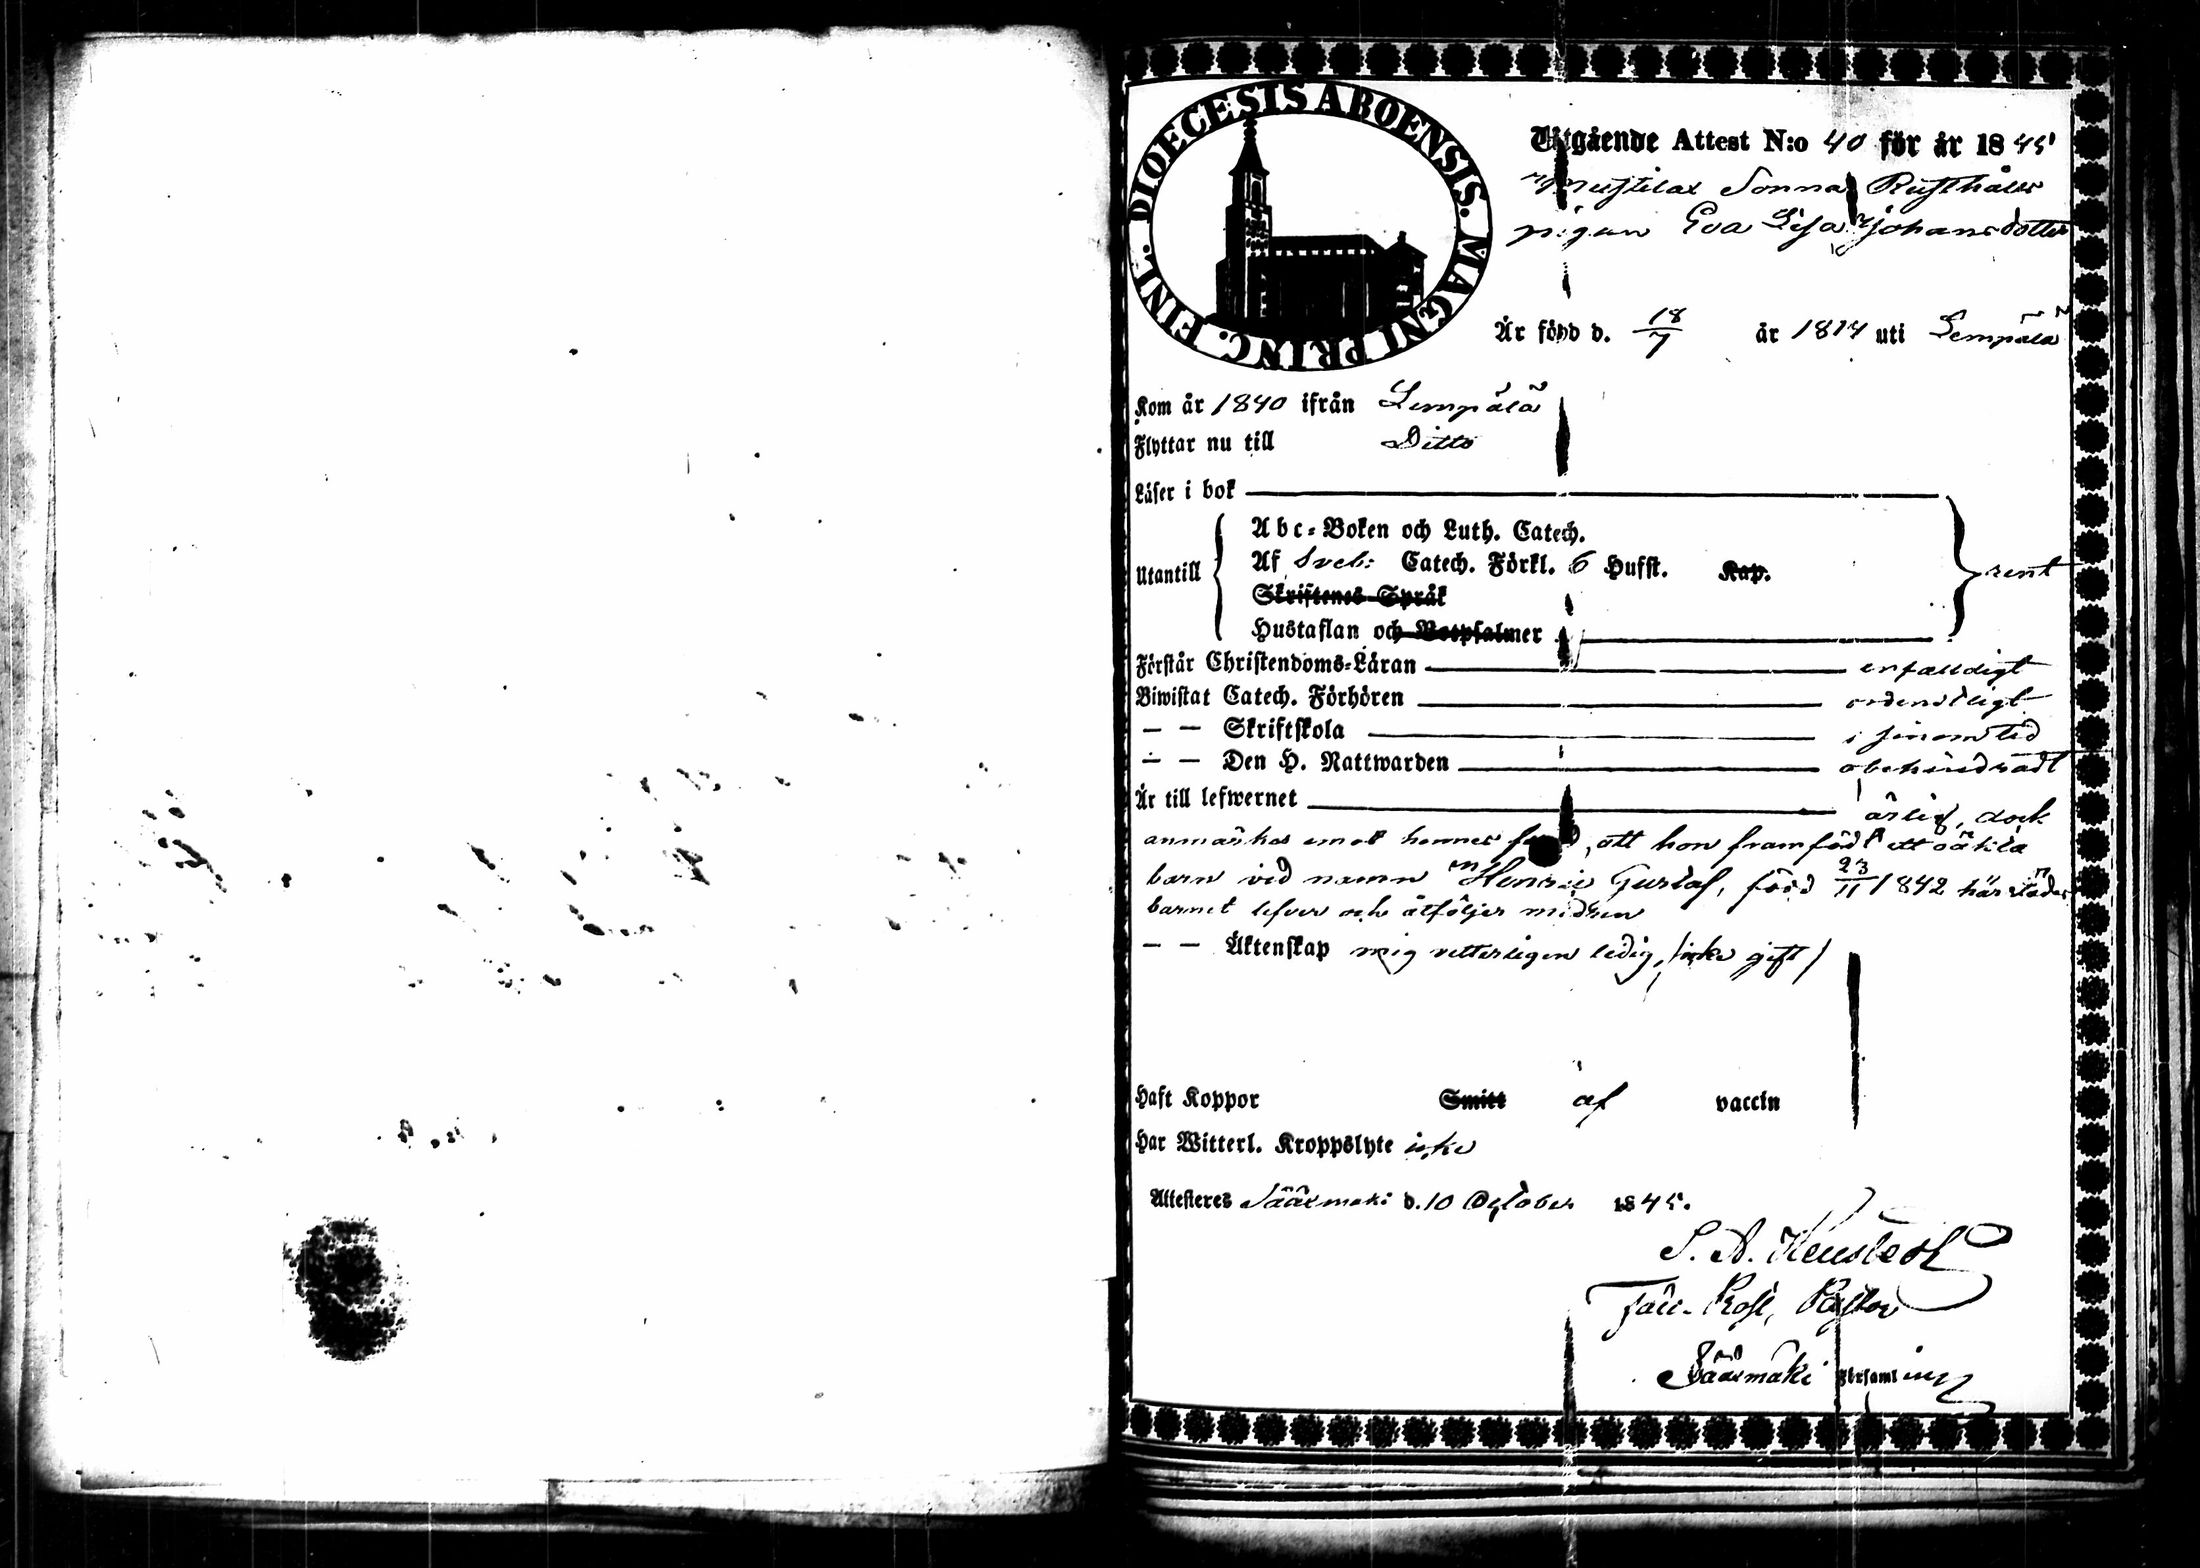 DIOECESIS ABOENSIS. MAGNI PRINC. FINL.
Utgående Attest N:o 40 för år 1845
Rusthålls
pigan Eva Lisa Johansdotter
Är född d. 18/7 år 1814 uti Lempälä
Kom år 1840 ifrån Lempälä
Flyttar nu till Ditto
Läser i bok
Utantill
Abc-Boken och Luth. Catech.
Af Sveb: Catech. Förkl. 6 Hufst. Kap. rent
Skriftenes Språk
Hustaflan och Botpsalmer
Förstår Christendoms-Läran enfalldigt
Biwistat Catech. Förhören ordentligt
— — Skriftskola i sinom tid
— — Den H. Nattwarden obehindradt
Är till lefwernet ärlig, dock
anmärkes emot hennes, att hon framfödt ett oäkta
barn vid namn Henric Gustaf, född 23/11 1842 härstädes
barnet lefver och åtföljer modren
— — Äktenskap mig vetterligen ledig, (icke gift)
Haft Koppor Smitt af vaccin
Har Witterl. Kroppslyte icke
Attesteres Sääxmäki d. 10 October 1845.
Pastor
Sääxmäki Församling